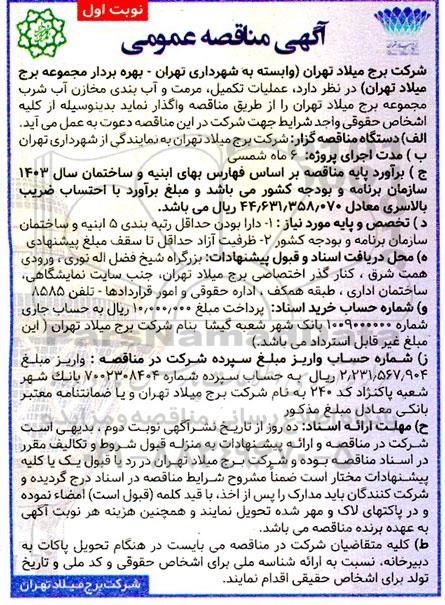 نوبت اول
آگهی مناقصه عمومی
شرکت برج میلاد تهران (وابسته به شهرداری تهران - بهره بردار مجموعه برج
میلاد تهران) در نظر دارد، عملیات تکمیل، مرمت و آب بندی مخازن آب شرب
مجموعه برج میلاد تهران را از طریق مناقصه واگذار نماید بدینوسیله از کلیه
اشخاص حقوقی واجد شرایط جهت شرکت در این مناقصه دعوت به عمل می آید.
الف) دستگاه مناقصه گزار: شرکت برج میلاد تهران به نمایندگی از شهرداری تهران
ب ) مدت اجرای پروژه: ۶ ماه شمسی
ج ) برآورد پایه مناقصه بر اساس فهارس بهای ابنیه و ساختمان سال ۱۴۰۳
سازمان برنامه و بودجه کشور می باشد و مبلغ برآورد با احتساب ضریب
بالاسری معادل ۴۴,۶۳۱,۳۵۸,۰۷۰ ریال می باشد.
د ) تخصص و پایه مورد نیاز : ۱- دارا بودن حداقل رتبه بندی ۵ ابنیه و ساختمان
سازمان برنامه و بودجه کشور ۲- ظرفیت آزاد حداقل تا سقف مبلغ پیشنهادی
ه) محل دریافت اسناد و قبول پیشنهادات: بزرگراه شیخ فضل اله نوری ، ورودی
همت شرق ، کنار گذر اختصاصی برج میلاد تهران، جنب سایت نمایشگاهی،
ساختمان اداری ، طبقه همکف ، اداره حقوقی و امور قراردادها - تلفن ۸۵۸۵
و) شماره حساب خرید اسناد: پرداخت مبلغ ۱۰,۰۰۰,۰۰۰ ریال به حساب جاری
شماره ۱۰۰۹۰۰۰۰۰۰ بانک شهر شعبه گیشا بنام شرکت برج میلاد تهران ( این
مبلغ غیر قابل استرداد می باشد.)
ز) شماره حساب واریز مبلغ سپرده شرکت در مناقصه : واریز مبلغ
۲,۲۳۱,۵۶۷,۹۰۴ ریال به حساب سپرده شماره ۷۰۰۲۳۰۸۴۰۴ بانک شهر
شعبه پاکنژاد کد ۲۴۰ به نام شرکت برج میلاد تهران و یا ضمانتنامه معتبر
بانکی معادل مبلغ مذکور
ح) مهلت ارائه اسناد: ده روز از تاریخ نشرآگهی نوبت دوم ، بدیهی است
شرکت در مناقصه و ارائه پیشنهادات به منزله قبول شروط و تکالیف مقرر
در اسناد مناقصه بوده و شرکت برج میلاد تهران در رد یا قبول یک یا کلیه
پیشنهادات مختار است ضمناً مشروح شرایط مناقصه در اسناد درج گردیده و
شرکت کنندگان باید مدارک را پس از اخذ، با قید کلمه (قبول است) امضاء نموده
و در پاکتهای لاک و مهر شده تحویل نمایند و همچنین هزینه هر نوبت آگهی
به عهده برنده مناقصه می باشد.
ط) کلیه متقاضیان شرکت در مناقصه می بایست در هنگام تحویل پاکات به
دبیرخانه، نسبت به ارائه شناسه ملی برای اشخاص حقوقی و کد ملی و تاریخ
تولد برای اشخاص حقیقی اقدام نمایند.
شرکت برج میلاد تهران